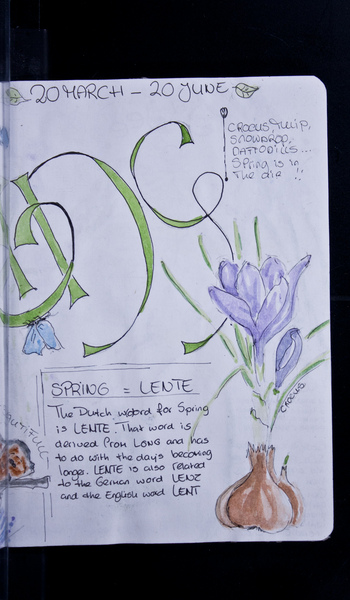 20 MARCH - 20 JUNE
CROCUS, TULIP,
SNOWDROP,
DAFFODILS...
Spring is in
the air !!
SPRING = LENTE
The Dutch word for Spring
is LENTE. That word is
derived from LONG and has
to do with the days becoming
longer. LENTE is also related
to the German word LENZ
and the English word LENT
CROCUS